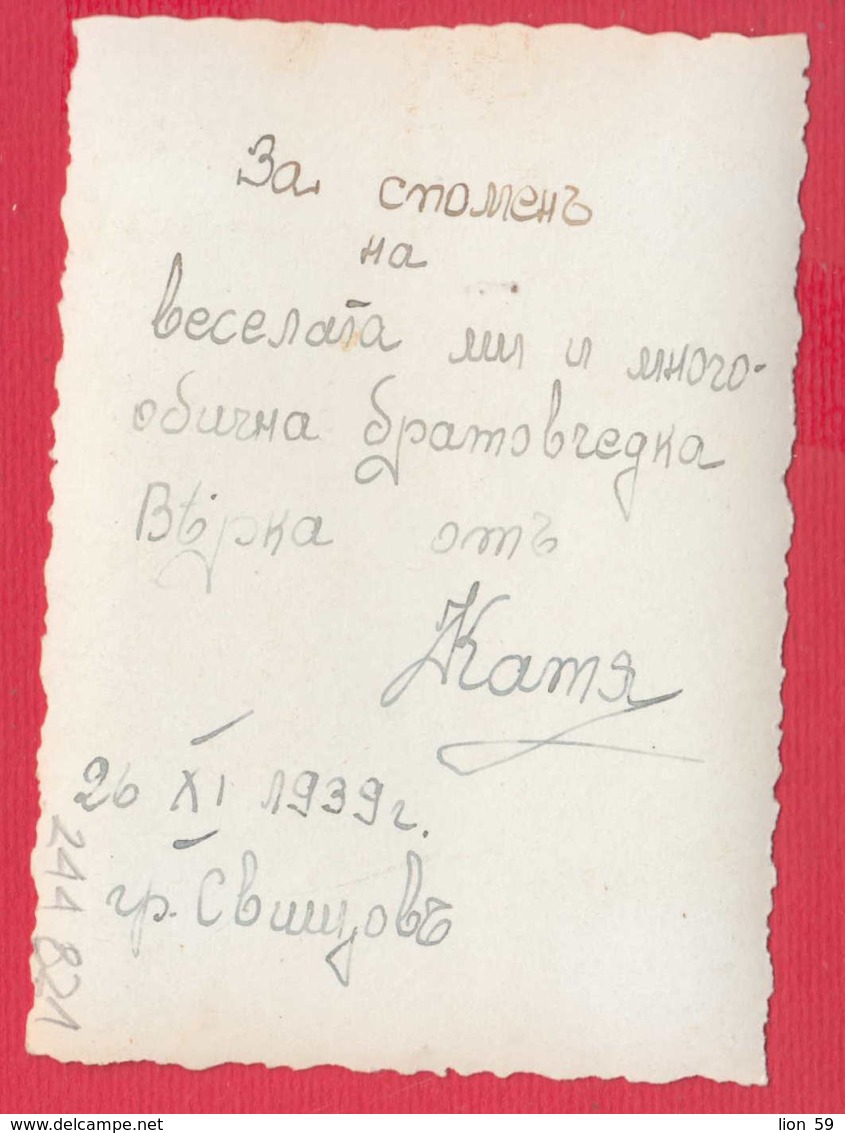 За споменъ
на
веселата ми и много-
обична братовчедка
Вѣрка отъ
Катя
26 XI 1939 г.
гр. Свищовъ
244 821
www.delcampe.net
lion 59